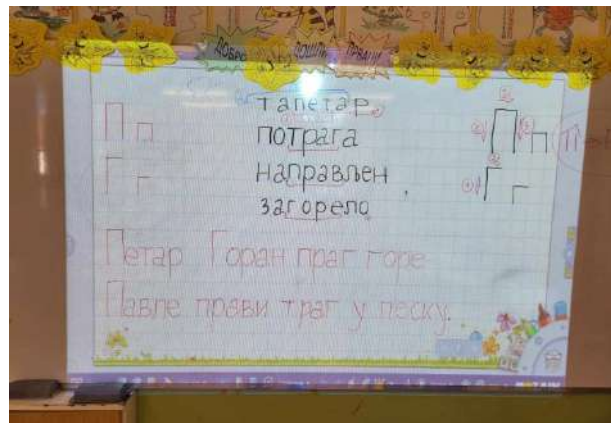 ДОБРО ДОШЛИ ПРВАЦИ
тапетар
П п потрага П п
Г г направљен Г г
загорело
Петар Горан праг горе
Павле прави траг у песку.